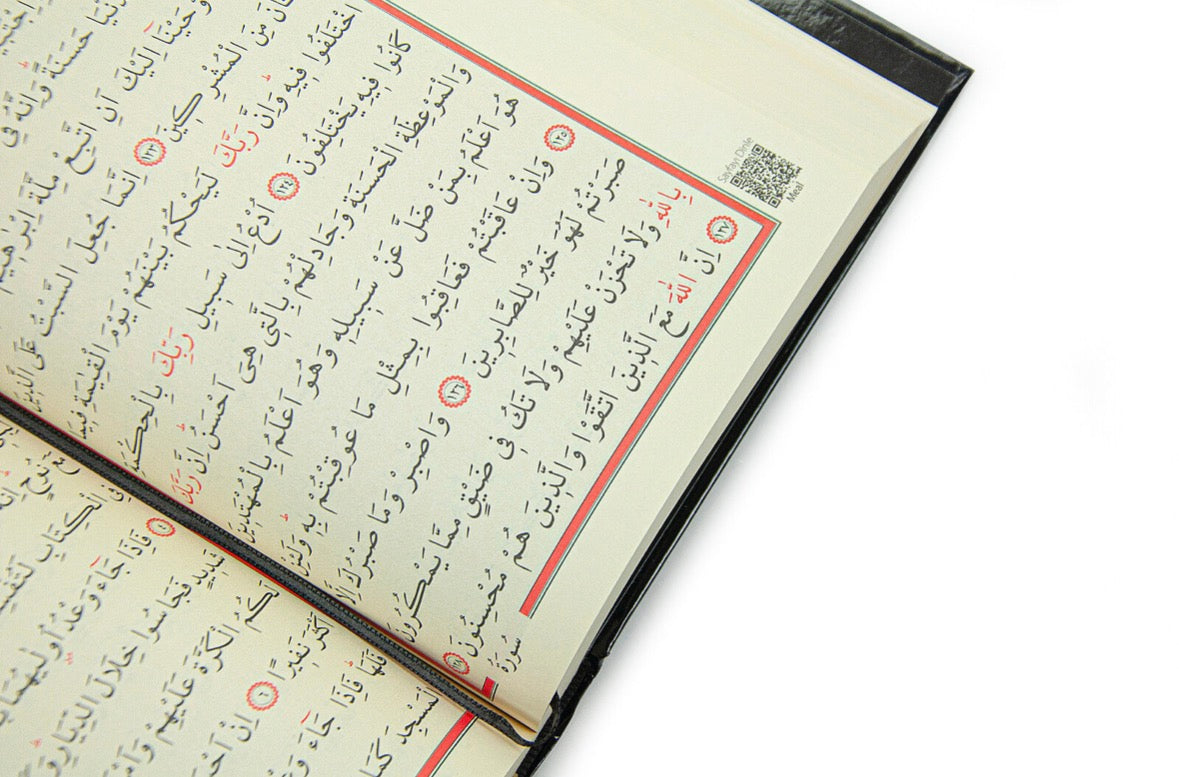 الدُّنْيَا حَسَنَةً وَاِنَّهُ فِى
اَوْحَيْنَٓا اِلَيْكَ اَنِ اتَّبِعْ مِلَّةَ اِبْرٰهِيمَ
كَانَ مِنَ الْمُشْرِكِينَ ١٢٣ اِنَّمَا جُعِلَ السَّبْتُ عَلَى الَّذِينَ
اخْتَلَفُوا فِيهِ وَاِنَّ رَبَّكَ لَيَحْكُمُ بَيْنَهُمْ يَوْمَ الْقِيٰمَةِ فِيمَا
كَانُوا فِيهِ يَخْتَلِفُونَ ١٢٤ اُدْعُ اِلٰى سَبِيلِ رَبِّكَ بِالْحِكْمَةِ
وَالْمَوْعِظَةِ الْحَسَنَةِ وَجَادِلْهُمْ بِالَّتِى هِىَ اَحْسَنُ اِنَّ رَبَّكَ
هُوَ اَعْلَمُ بِمَنْ ضَلَّ عَنْ سَبِيلِهِ وَهُوَ اَعْلَمُ بِالْمُهْتَدِينَ
١٢٥ وَاِنْ عَاقَبْتُمْ فَعَاقِبُوا بِمِثْلِ مَا عُوقِبْتُمْ بِهِ وَلَئِنْ
صَبَرْتُمْ لَهُوَ خَيْرٌ لِلصَّابِرِينَ ١٢٦ وَاصْبِرْ وَمَا صَبْرُكَ اِلَّا
بِاللّٰهِ وَلَا تَحْزَنْ عَلَيْهِمْ وَلَا تَكُ فِى ضَيْقٍ مِمَّا يَمْكُرُونَ
١٢٧ اِنَّ اللّٰهَ مَعَ الَّذِينَ اتَّقَوْا وَالَّذِينَ هُمْ مُحْسِنُونَ ١٢٨
سُورَةُ
Sayfayı Dinle
Meal
فِى الْكِتَابِ
٤ فَاِذَا جَٓاءَ وَعْدُ اُو۫لٰيهُمَا
شَدِيدٍ فَجَاسُوا خِلَالَ الدِّيَارِ
لَكُمُ الْكَرَّةَ عَلَيْهِمْ
اَكْثَرَ نَفِيرًا ٦ اِنْ
فَلَهَا فَاِذَا جَٓاءَ
الْمَسْجِدَ كَمَا